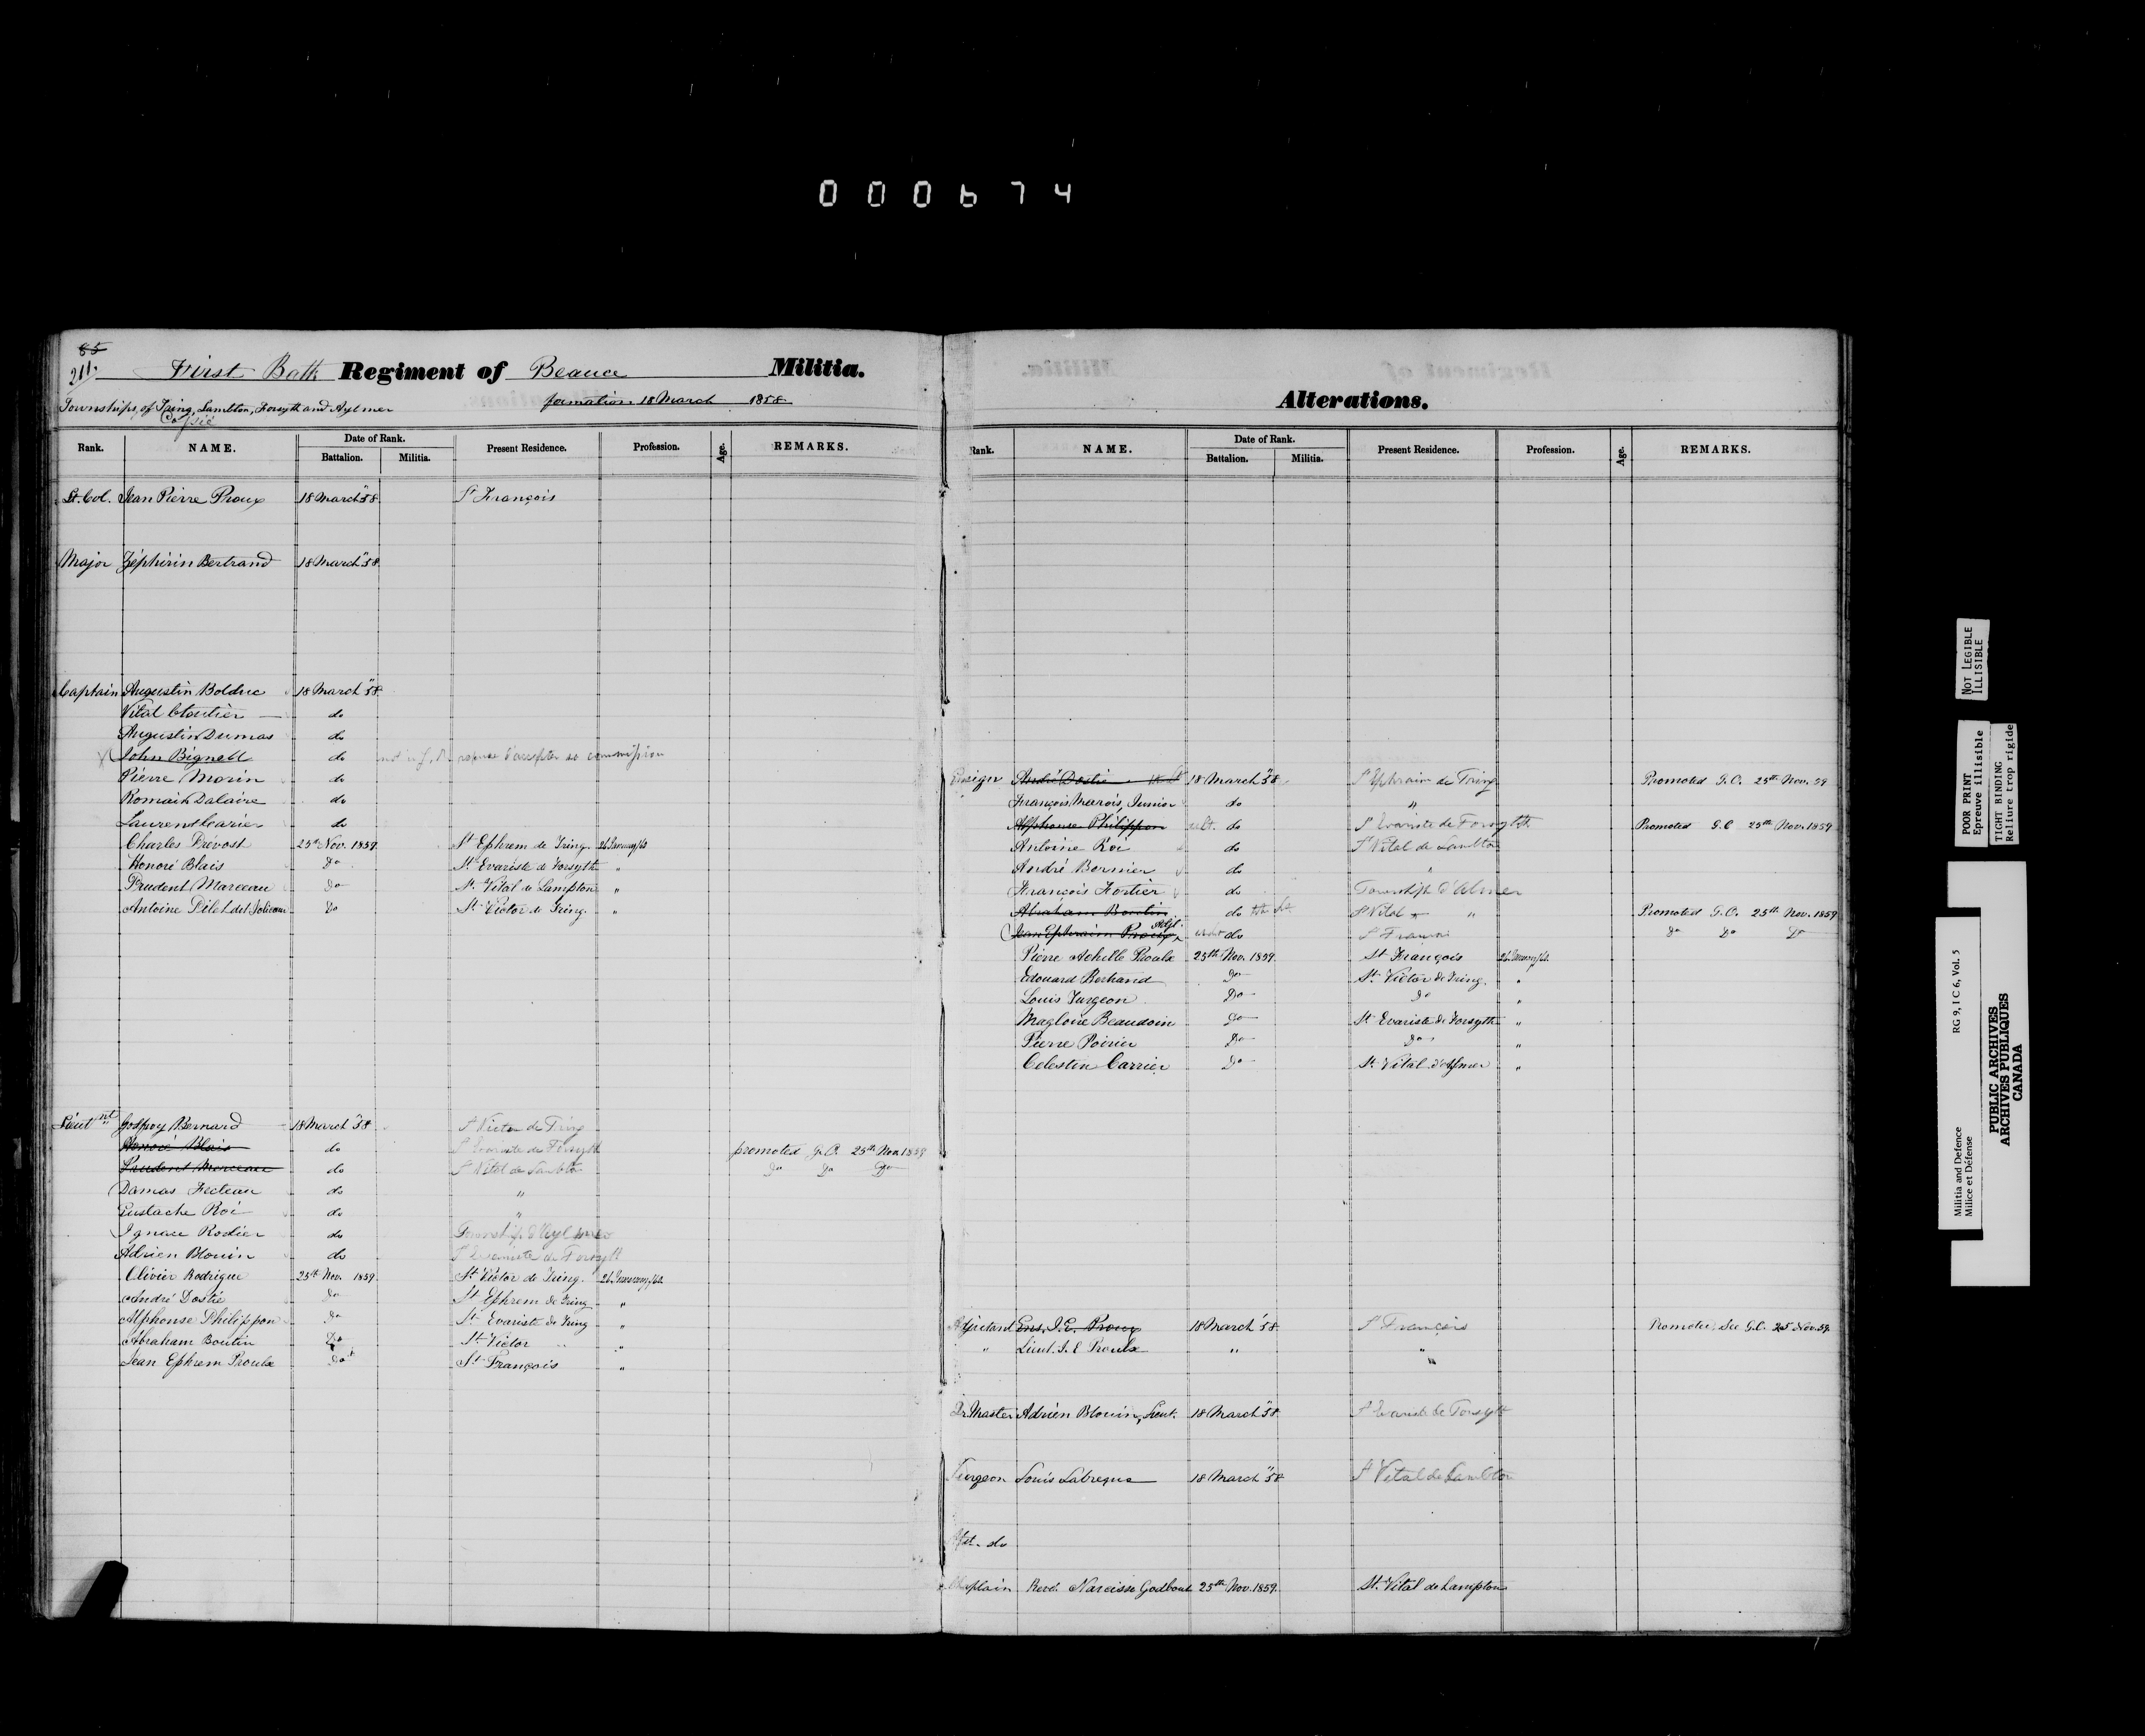 000674
85
211.
First Batt. Regiment of Beauce Militia.
Townships of Tring, Lambton, Forsyth and Aylmer formation 18 March 1858
Copié
Rank. NAME. Date of Rank. Battalion. Militia. Present Residence. Profession. Age. REMARKS.
Lt. Col. Jean Pierre Proux 18 March "58. St François
Major Zéphirin Bertrand 18 March "58.
Captain Augustin Bolduc 18 March "58.
Vital Cloutier do
Augustin Dumas do
John Bignell do refuse d'accepter sa commission
Pierre Morin do
Romain Dalaire do
Laurent Carier do
Charles Prévost 25th Nov. 1859. St Ephrem de Tring.
Honoré Blais Do St Evariste de Forsyth "
Prudent Marceau Do St Vital de Lampton "
Antoine Pilet dit Jolicoeur Do St Victor de Tring. "
Lieutnt Godfroy Bernard 18 March "58 St Victor de Tring
Honoré Blais do St Evariste de Forsyth promoted G.O. 25th Nov. 1859
Prudent Marceau do St Vital de Lambton Do Do Do
Damas Fecteau do "
Eustache Roi do "
Ignace Rodier do Township d'Aylmer
Adrien Blouin do St Evariste de Forsyth
Olivier Rodrigue 25th Nov. 1859. St Victor de Tring.
André Dostie Do St Ephrem de Tring "
Alphonse Philippon Do St Evariste de Tring "
Abraham Boutin Do St Victor "
Jean Ephrem Proulx Do St François "
Alterations.
Rank. NAME. Date of Rank. Battalion. Militia. Present Residence. Profession. Age. REMARKS.
Ensign André Dostie 18 March "58 St Ephraim de Tring Promoted G.O. 25th Nov. 59
François Marois, Junior do "
Alphonse Philippon do St Evariste de Forsyth Promoted G.O 25th Nov. 1859
Antoine Roi do St Vital de Lambton
André Bernier do "
François Fortier do Township d'Almer
Abraham Boutin do St Vital " Promoted G.O. 25th Nov. 1859
Jean Ephraim Proux, Adjt. do St François Do Do Do
Pierre Achille Proulx 25th Nov. 1859. St François
Edouard Bertrand Do St Victor de Tring. "
Louis Turgeon Do Do "
Magloire Beaudoin Do St Evariste de Forsyth "
Pierre Poirier Do Do "
Celestin Carrier Do St Vital d'Aylmer "
Adjutant Ens. J. E. Proux 18 March "58. St François Promoted, See G.O. 25 Nov. 59.
" Lieut. J. E Proulx " "
Qr. Master Adrien Blouin, Lieut. 18 March "58 St Evariste de Forsyth
Surgeon Louis Labreque 18 March "58 St Vital de Lambton
Asst. do
Chaplain Revd. Narcisse Godbout 25th Nov. 1859. St Vital de Lampton
NOT LEGIBLE
ILLISIBLE
POOR PRINT
Epreuve illisible
TIGHT BINDING
Reliure trop rigide
Militia and Defence RG 9, I C 6, Vol. 5
Milice et Défense
PUBLIC ARCHIVES
ARCHIVES PUBLIQUES
CANADA